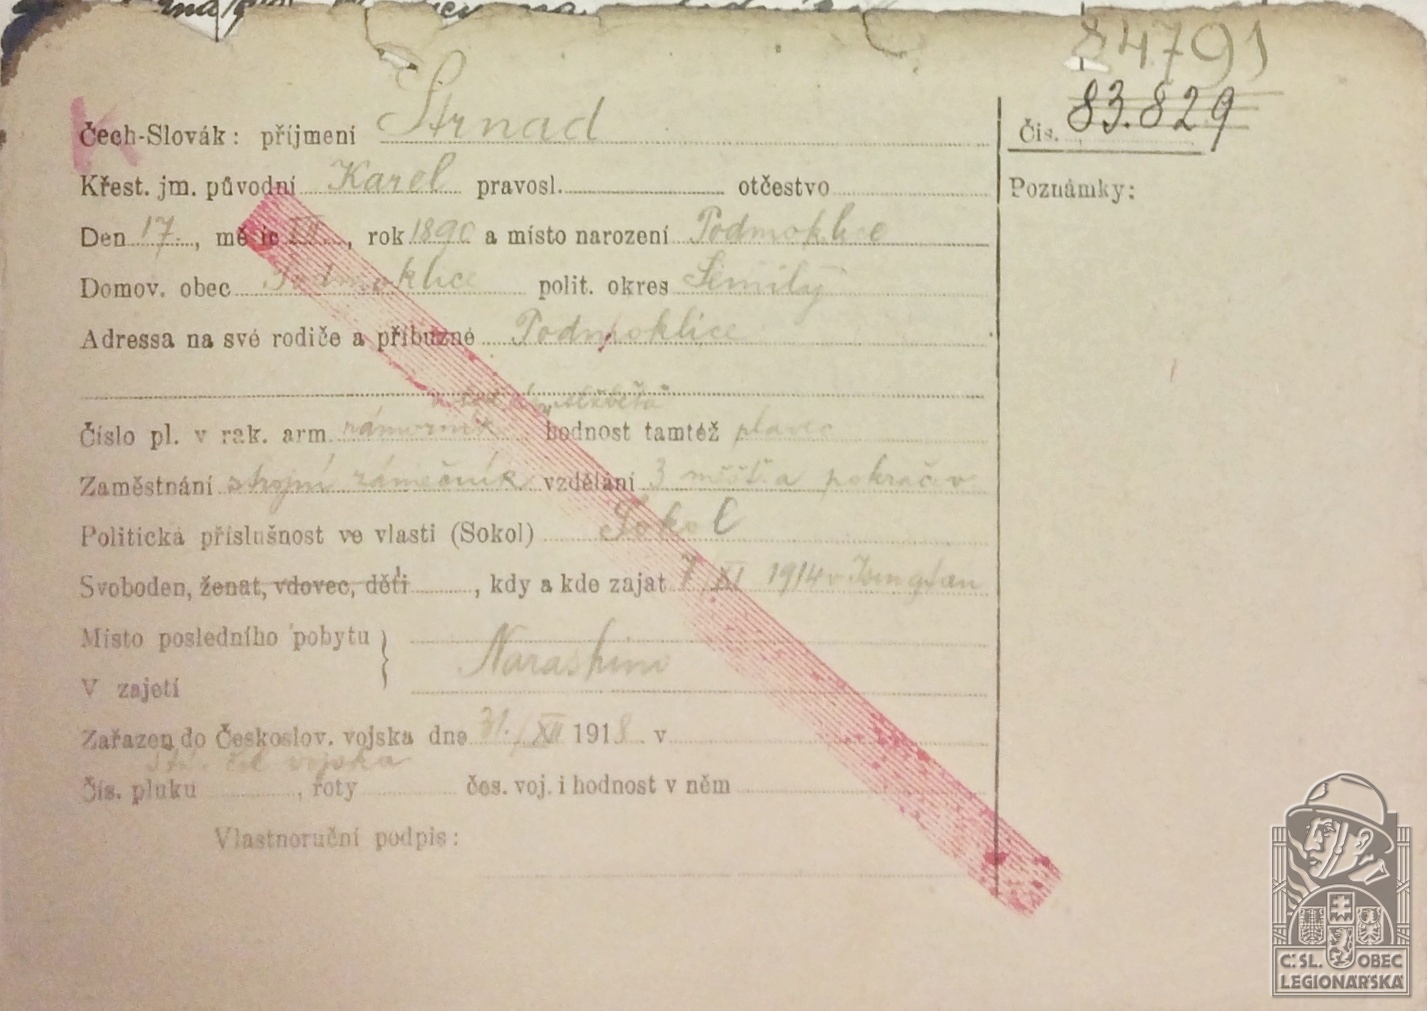 84791
Čís. 83.829
Čech-Slovák: příjmení Strnad
Křest. jm. původní Karel pravosl. otčestvo
Poznámky:
Den 17., měsíc, rok 1890 a místo narození Podmoklice
Domov. obec Podmoklice polit. okres Semily
Adressa na své rodiče a příbuzné Podmoklice
Číslo pl. v rak. arm hodnost tamtéž plavec
Zaměstnání strojní zámečník vzdělání 3 měšť. a pokračov
Politická příslušnost ve vlasti (Sokol) Sokol
Svoboden, ženat, vdovec, děti, kdy a kde zajat 7/XI 1914 v
Místo posledního pobytu
V zajetí } Narashino
Zařazen do Českoslov. vojska dne 31./XII 1918 v
čsl vojska
Čís. pluku, roty čes. voj. i hodnost v něm
Vlastnoruční podpis:
Č.SL. OBEC
LEGIONÁŘSKÁ